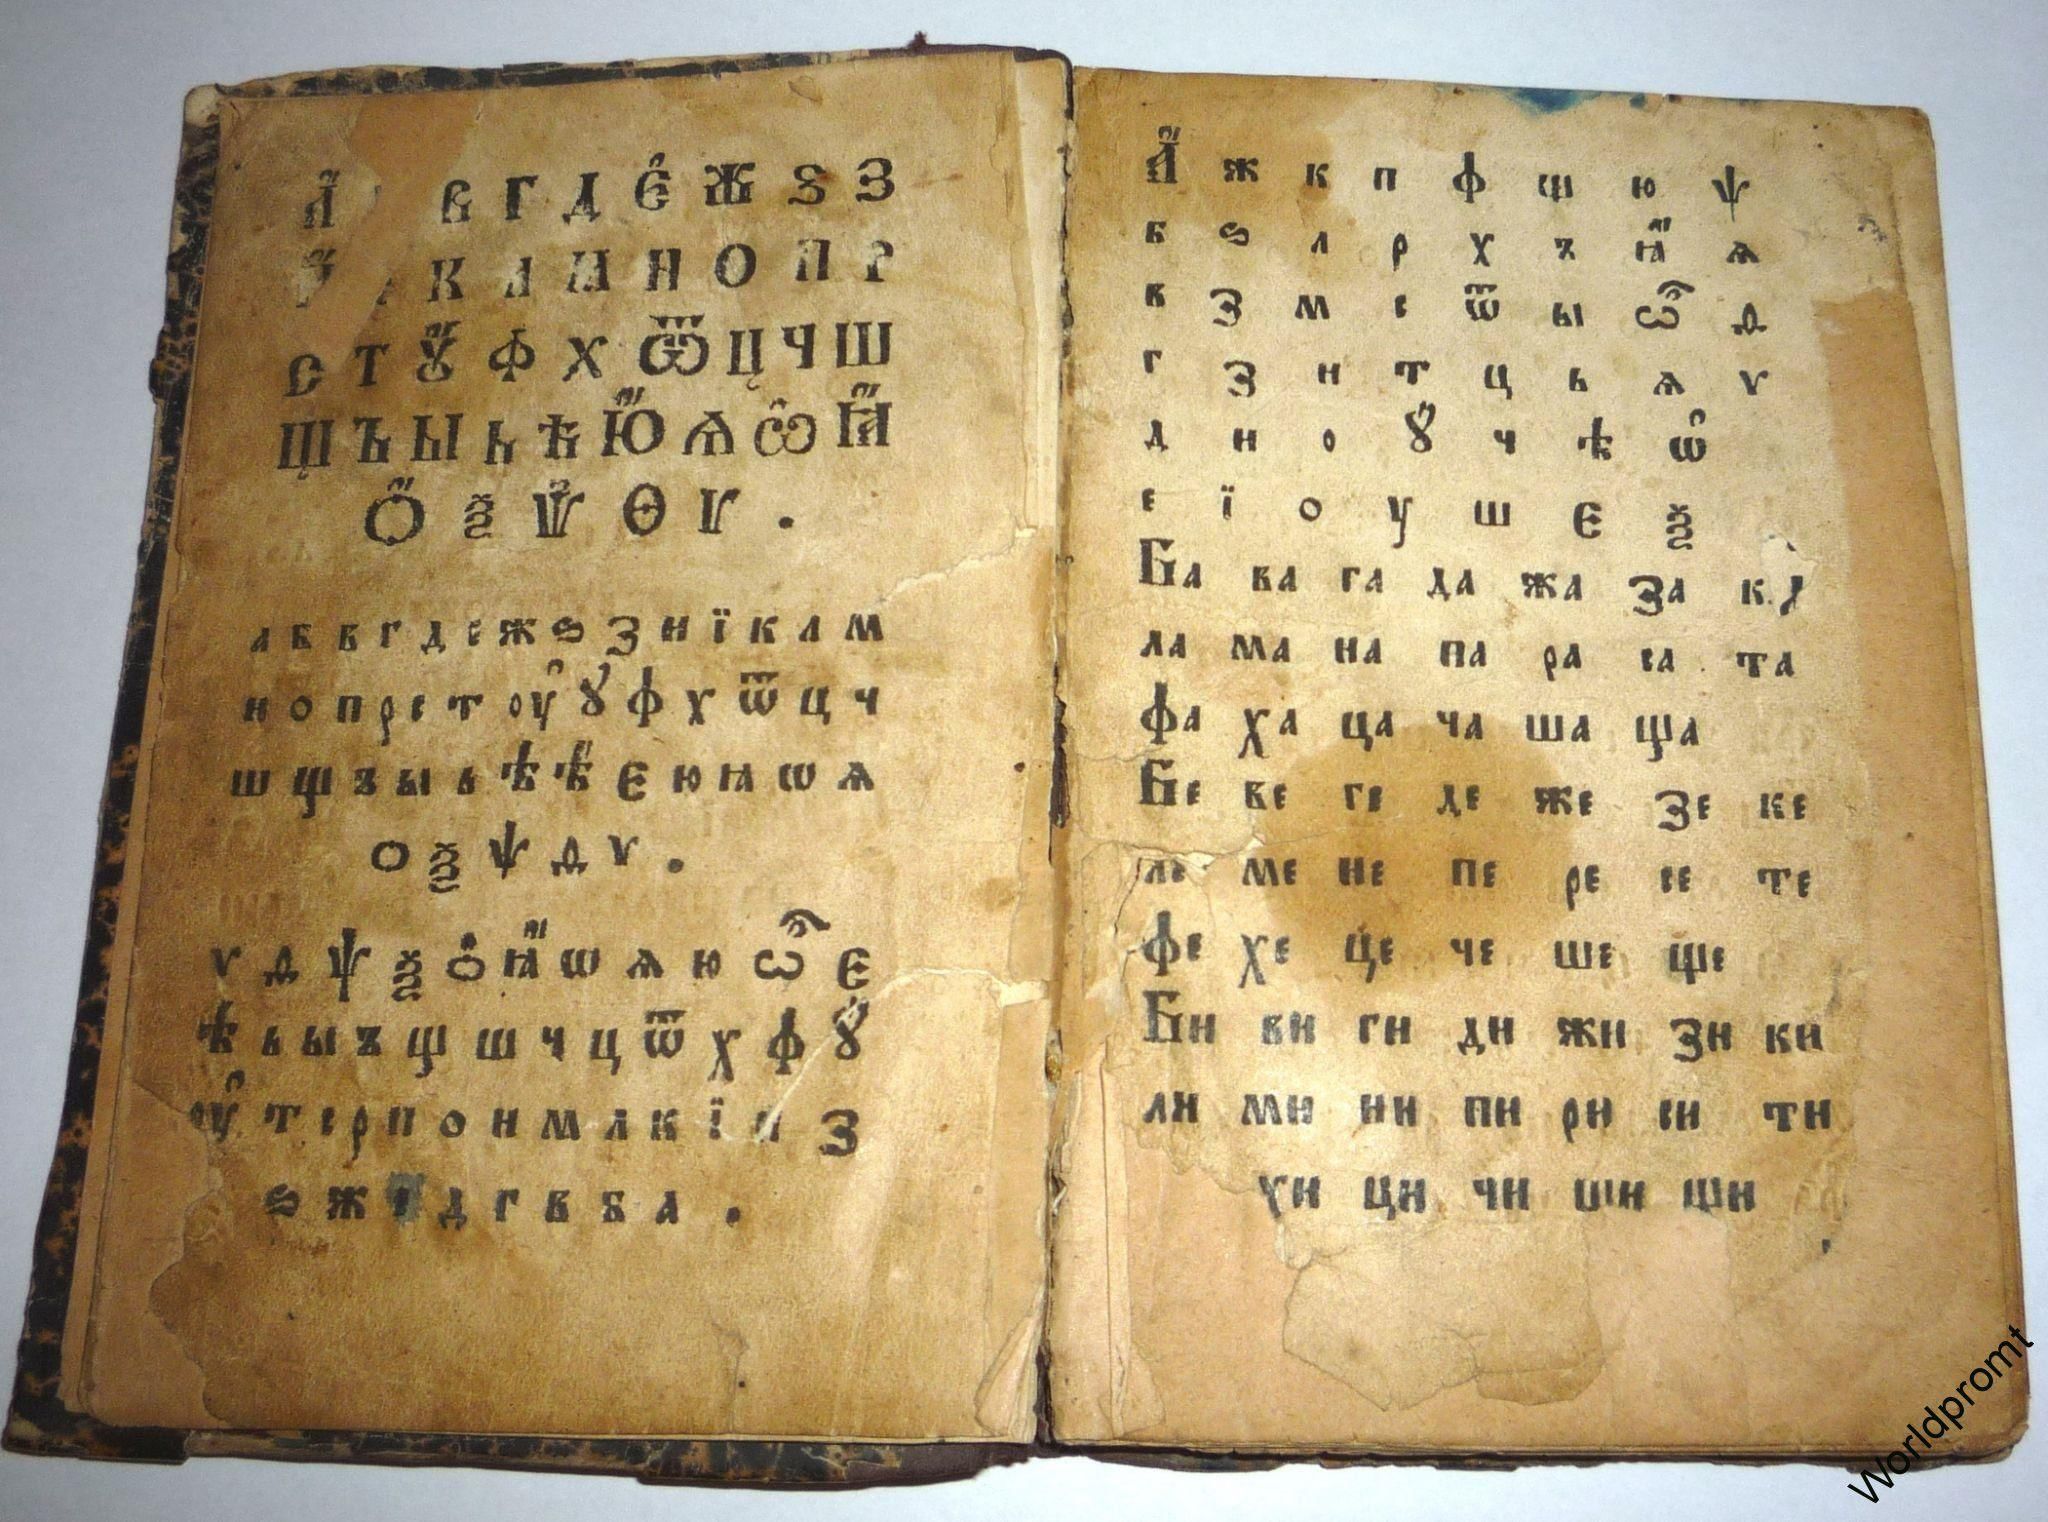 А В Г Д Є Ж Ѕ З
К Л М Н О П Р
С Т Ꙋ Ф Х Ѿ Ц Ч Ш
Щ Ъ Ы Ь Ѣ Ю Ѧ Ѽ Ꙗ
Ѻ Ѯ Ѱ Ѳ Ѵ .
а б в г д е ж ѕ з и ї к л м
н о п р с т оу ꙋ ф х ѿ ц ч
ш щ ъ ы ь ѣ ѣ є ю ꙗ ѡ ѧ
ѻ ѯ ѱ ѳ ѵ .
ѵ ѳ ѱ ѯ ѻ ꙗ ѡ ѧ ю ѽ є
ѣ ь ы ъ щ ш ч ц ѿ х ф ꙋ
оу т с р п о н м л к ї и з
ѕ ж е д г в б а .
А ж к п ф щ ю ѱ
б ѕ л р х ъ ꙗ ѧ
в з м с ѿ ы ѽ ѳ
г з н т ц ь ѧ ѵ
д и о ꙋ ч ѣ ѡ
е ї о у ш є ѯ
Ба ва га да жа за
ла ма на па ра са та
фа ха ца ча ша ща
Бе ве ге де же зе ке
ле ме не пе ре се те
фе хе це че ше ще
Би ви ги ди жи зи ки
ли ми ни пи ри си ти
хи ци чи ши щи
Worldpromt